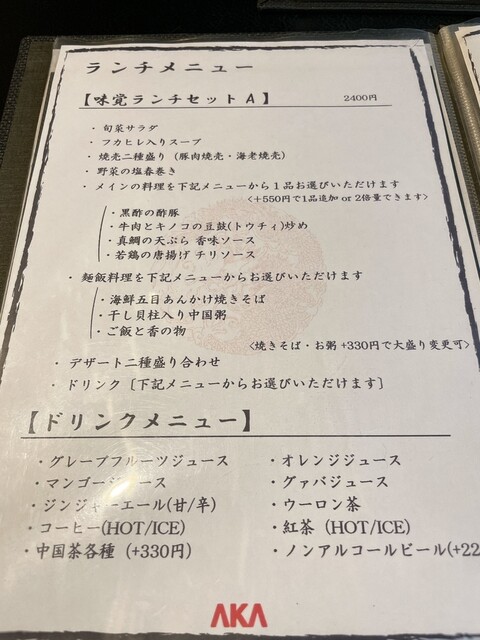 ランチメニュー
【味覚ランチセット A】 2400円
・旬菜サラダ
・フカヒレ入りスープ
・焼売二種盛り（豚肉焼売・海老焼売）
・野菜の塩春巻き
・メインの料理を下記メニューから1品お選びいただけます
<+550円で1品追加 or 2倍量できます>
・黒酢の酢豚
・牛肉とキノコの豆鼓(トウチィ)炒め
・真鯛の天ぷら 香味ソース
・若鶏の唐揚げ チリソース
・麺飯料理を下記メニューからお選びいただけます
・海鮮五目あんかけ焼きそば
・干し貝柱入り中国粥
・ご飯と香の物
<焼きそば・お粥 +330円で大盛り変更可>
・デザート二種盛り合わせ
・ドリンク［下記メニューからお選びいただけます］
【ドリンクメニュー】
・グレープフルーツジュース ・オレンジジュース
・マンゴージュース ・グァバジュース
・ジンジャーエール(甘/辛) ・ウーロン茶
・コーヒー(HOT/ICE) ・紅茶 (HOT/ICE)
・中国茶各種 (+330円) ・ノンアルコールビール(+22
AKA